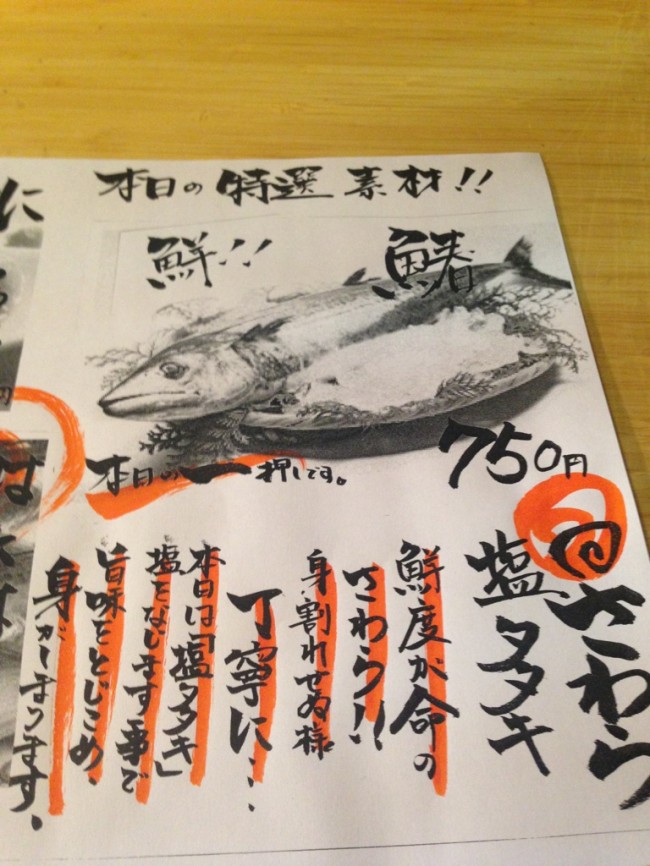 本日の特選素材!!
鮮!!
鰆
本日の一押しです。
750円
旬さわら
塩タタキ
鮮度が命の
さわら!!
身割れせぬ様
丁寧に…
本日は「塩タタキ」
塩をなじます事で
旨味をとじこめ、
身がしまります、
に
円